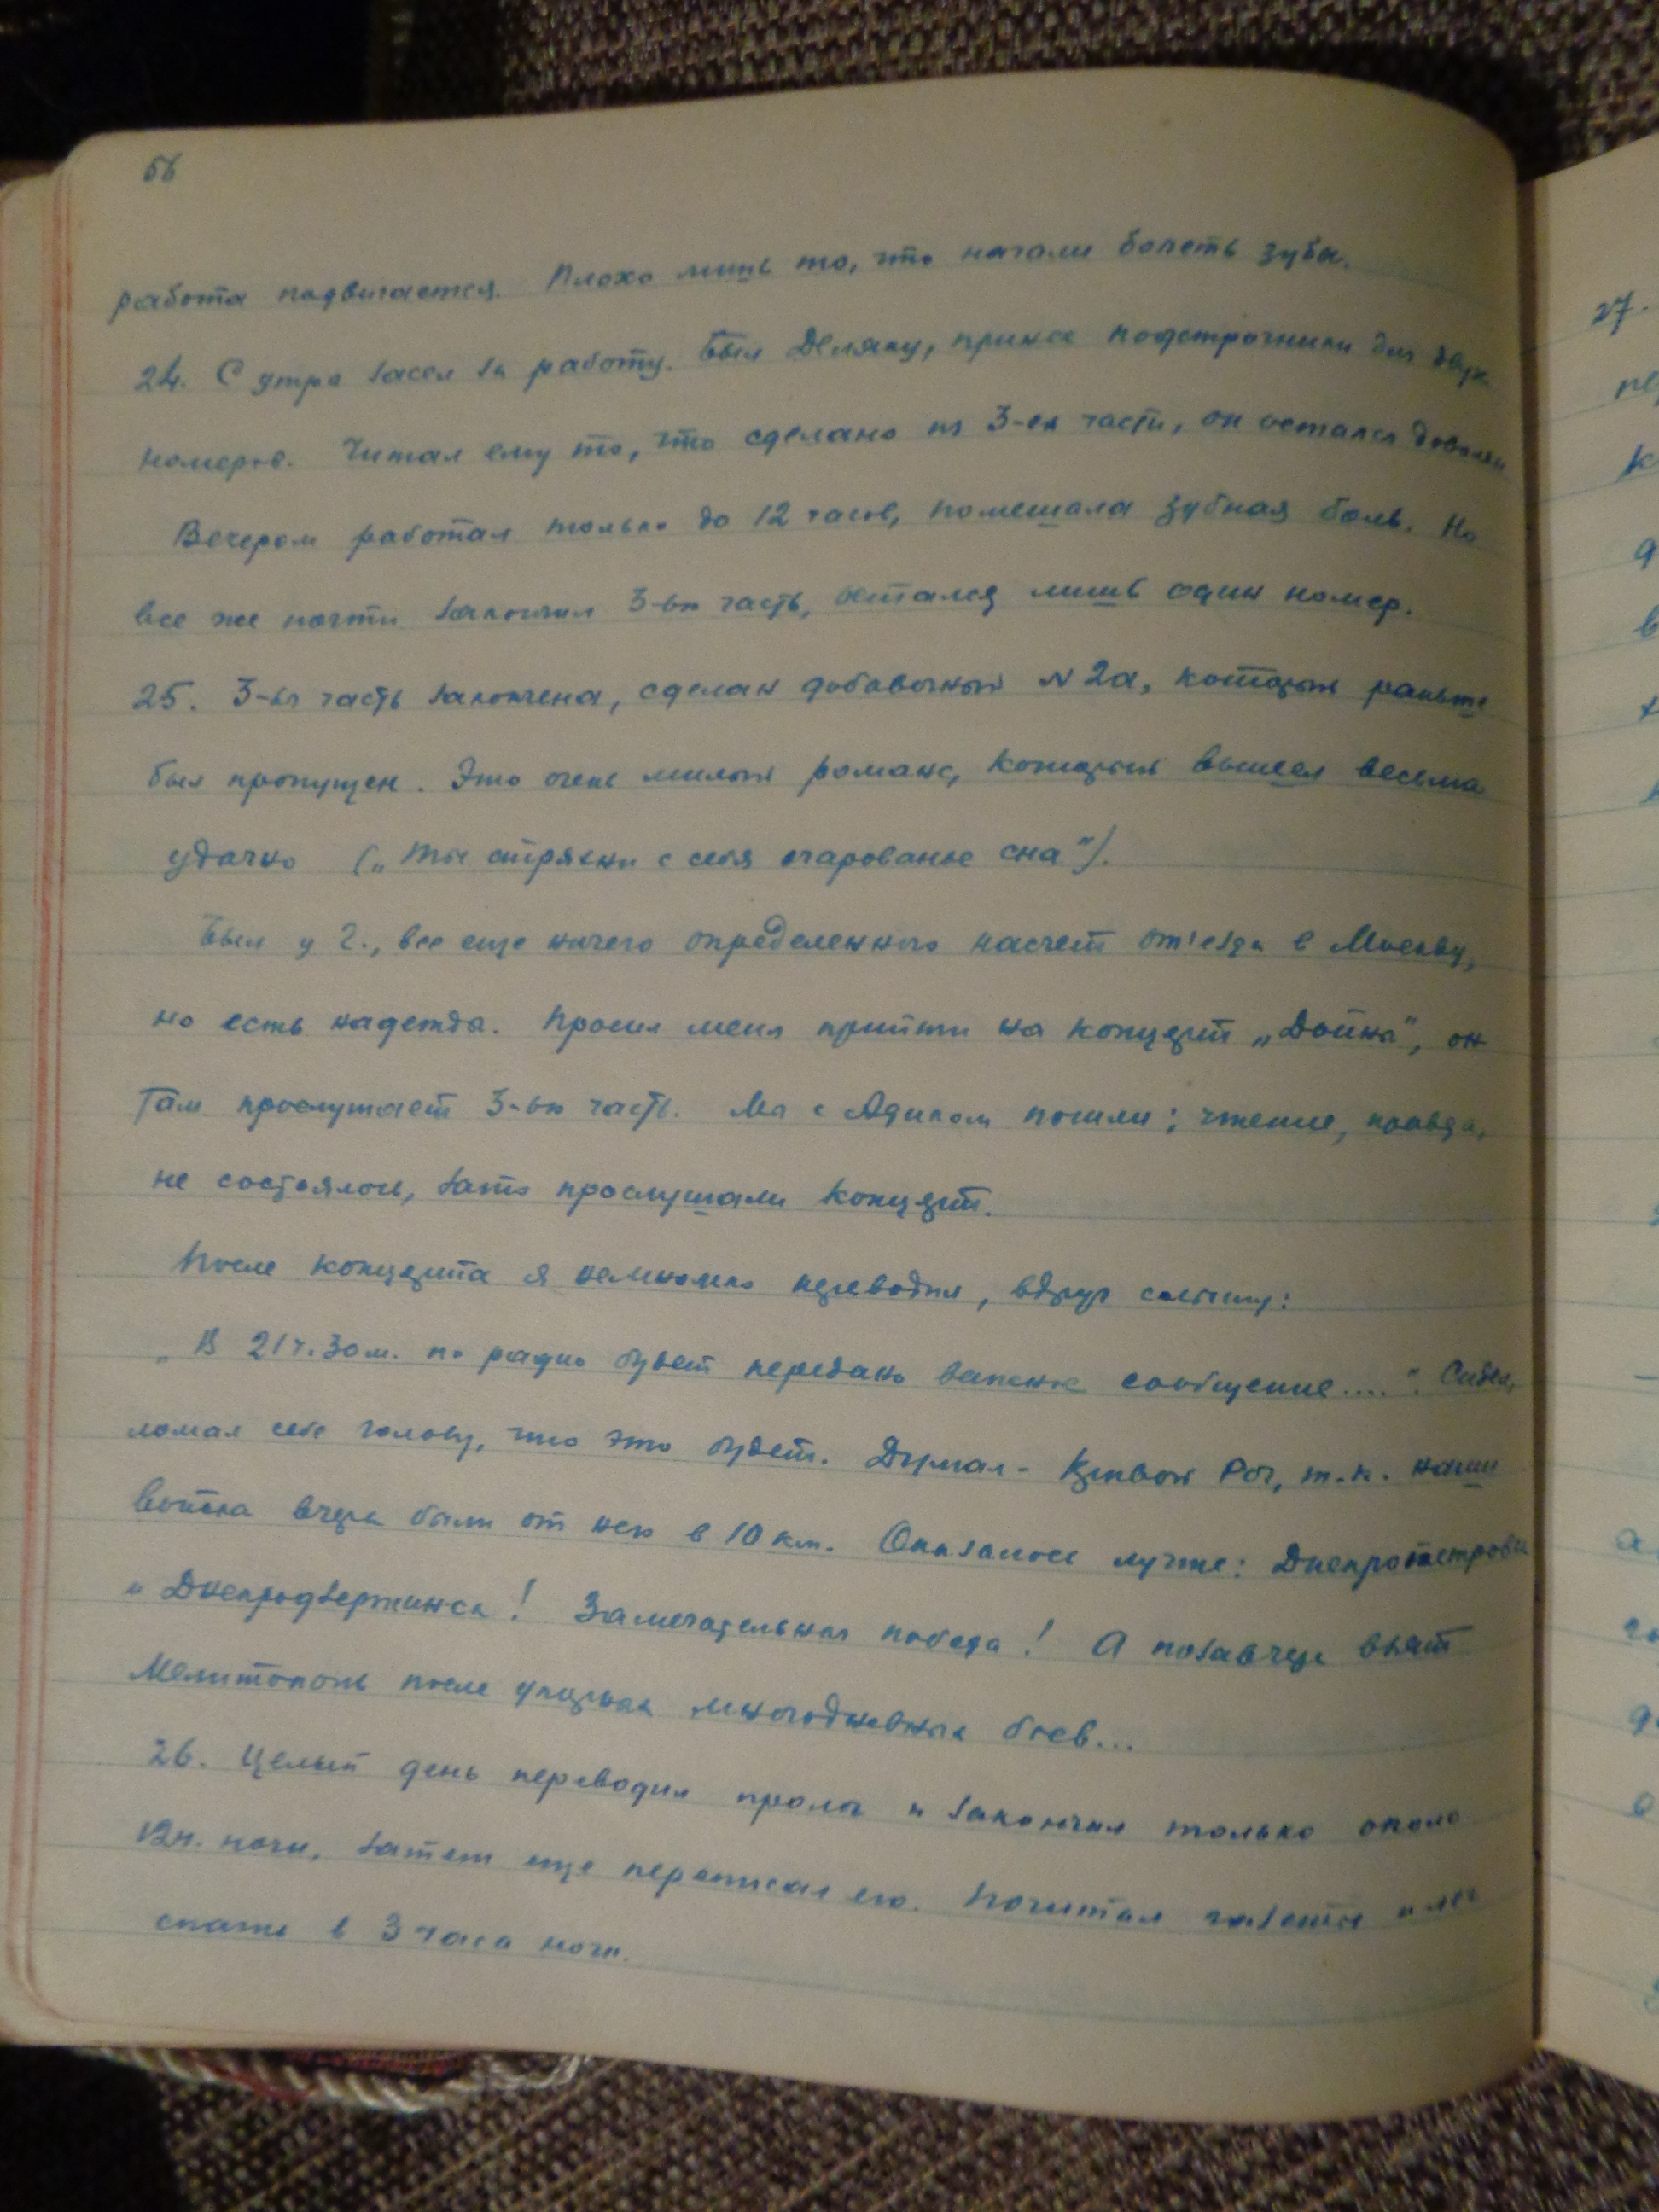 56
работа подвигается. Плохо лишь то, что начали болеть зубы.
27.
24. С утра засел за работу. Был Деляну, принес подстрочники для двух
номеров. Читал ему то, что сделано из 3-ей части, он остался доволен
Вечером работал только до 12 часов, помешала зубная боль. Но
все же почти закончил 3-ью часть, остался лишь один номер.
25. 3-ья часть закончена, сделан добавочный N 2а, который раньше
был пропущен. Это очень милый романс, который вышел весьма
удачно („Ты стряхни с себя очарованье сна").
Был у Г., все еще ничего определенного насчет от'езда в Москву,
но есть надежда. Просил меня прийти на концерт „Дойны", он
там прослушает 3-ью часть. Мы с Адиком пошли; чтение, правда,
не состоялось, зато прослушали концерт.
После концерта я немножко переводил, вдруг слышу:
„В 21 ч. 30 м. по радио будет передано важное сообщение....". Сидел,
ломал себе голову, что это будет. Думал - Кривой Рог, т.к. наши
войска вчера были от него в 10 км. Оказалось лучше: Днепропетровск
и Днепродзержинск! Замечательная победа! А позавчера взят
Мелитополь после упорных многодневных боев...
26. Целый день переводил пролог и закончил только около
12 ч. ночи, затем еще переписал его. Почитал газеты и лег
спать в 3 часа ночи.